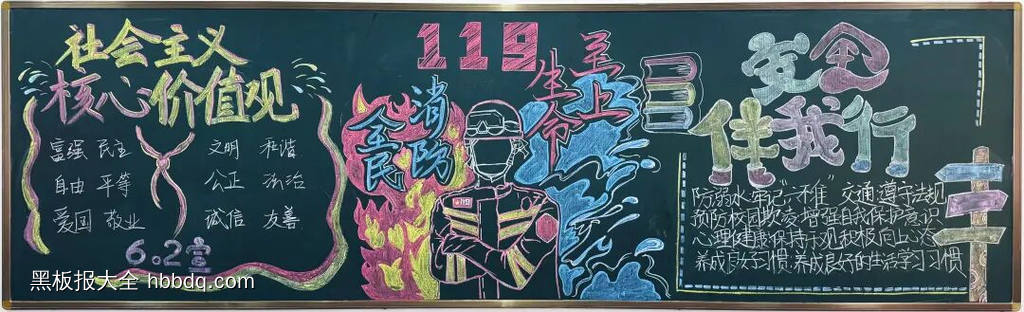 社会主义
核心价值观
富强 民主 文明 和谐
自由 平等 公正 法治
爱国 敬业 诚信 友善
6.2宣
119
全民
消防
生命
至上
安全
伴我行
防溺水 牢记“六不准” 交通 遵守法规
预防校园欺凌 增强自我保护意识
心理健康 保持乐观积极向上心态
养成良好习惯 养成良好的生活学习习惯
黑板报大全 hbbdq.com